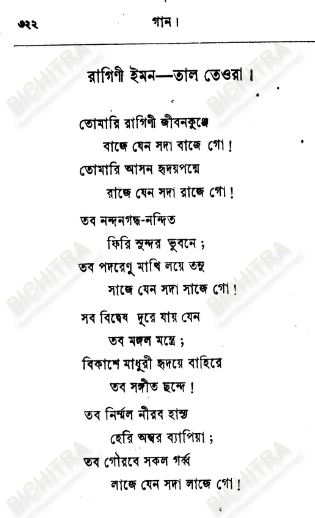 ৩২২ গান।
রাগিণী ইমন—তাল তেওরা।
তোমারি রাগিণী জীবনকুঞ্জে
বাজে যেন সদা বাজে গো!
তোমারি আসন হৃদয়পদ্মে
রাজে যেন সদা রাজে গো!
তব নন্দনগন্ধ-নন্দিত
ফিরি সুন্দর ভুবনে;
তব পদরেণু মাখি লয়ে তনু
সাজে যেন সদা সাজে গো!
সব বিদ্বেষ দূরে যায় যেন
তব মঙ্গল মন্ত্রে;
বিকাশে মাধুরী হৃদয়ে বাহিরে
তব সঙ্গীত ছন্দে!
তব নির্ম্মল নীরব হাস্য
হেরি অম্বর ব্যাপিয়া;
তব গৌরবে সকল গর্ব্ব
লাজে যেন সদা লাজে গো!
BICHITRA
BICHITRA
BICHITRA
BICHITRA
BICHITRA
BICHITRA